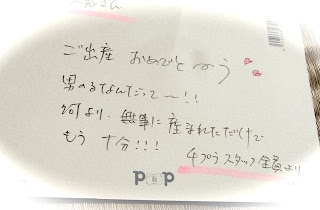 さん
ご出産 おめでとう
男の子なんだって〜!!
何より、無事に産まれただけで
もう 十分!!!
スタッフ全員より
pop